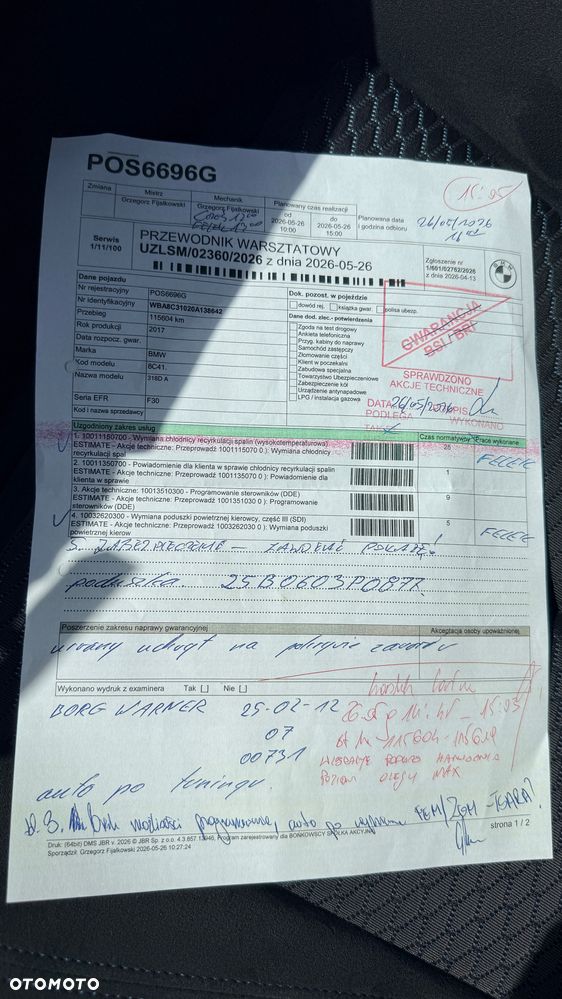 POS6696G
15:05
Zmiana
Mistrz
Grzegorz Fijałkowski
Mechanik
Grzegorz Fijałkowski
Planowany czas realizacji
od
2026-05-26
10:00
do
2026-05-26
15:00
Planowana data
i godzina odbioru
26/05/2026
Serwis
1/11/100
PRZEWODNIK WARSZTATOWY
UZLSM/02360/2026 z dnia 2026-05-26
Zgłoszenie nr
1/601/02762/2026
z dnia 2026-04-13
Dane pojazdu
Nr rejestracyjny POS6696G
Nr identyfikacyjny WBA8C31020A138642
Przebieg 115604 km
Rok produkcji 2017
Data rozpocz. gwar.
Marka BMW
Kod modelu 8C41.
Nazwa modelu 318D A
Seria EFR F30
Kod i nazwa sprzedawcy
Dok. pozost. w pojeździe
dowód rej. książka gwar. polisa ubezp.
Dane dod. zlec.- potwierdzenia
Zgoda na test drogowy
Ankieta telefoniczna
Przyg. kabiny do naprawy
Samochód zastępczy
Złomowanie części
Klient w poczekalni
Zabudowa specjalna
Towarzystwo Ubezpieczeniowe
Zabezpieczenie kół
Urządzenie antynapadowe
LPG / instalacja gazowa
GWARANCJA
BSI / BRI
SPRAWDZONO
AKCJE TECHNICZNE
DATA 26/05/2026 PODPIS
PODLEGA WYKONANO
Uzgodniony zakres usług
Czas normatywny
Prace wykonane
1. 10011150700 - Wymiana chłodnicy recyrkulacji spalin (wysokotemperaturowa)
ESTIMATE - Akcje techniczne: Przeprowadź 1001115070 0 ): Wymiana chłodnicy
recyrkulacji spal
25
2. 10011350700 - Powiadomienie dla klienta w sprawie chłodnicy recyrkulacji spalin
ESTIMATE - Akcje techniczne: Przeprowadź 1001135070 0 ): Powiadomienie dla
klienta w sprawie
1
3. Akcje techniczne: 10013510300 - Programowanie sterowników (DDE)
ESTIMATE - Akcje techniczne: Przeprowadź 1001351030 0 ): Programowanie
sterowników (DDE)
9
4. 10032620300 - Wymiana poduszki powietrznej kierowcy, część III (SDI)
ESTIMATE - Akcje techniczne: Przeprowadź 1003262030 0 ): Wymiana poduszki
powietrznej kierow
5
poduszka. 25B0603P0877
Poszerzenie zakresu naprawy gwarancyjnej
Akceptacja osoby upoważnionej
urwany uchwyt na pokrywie zaworów
Wykonano wydruk z examinera Tak [ ] Nie [ ]
BORG WARNER 25-02-12
07
00731
auto po tuningu.
POZIOM OLEJU MAX
strona 1 / 2
Druk: (64bit) DMS JBR v. 2026 © JBR Sp. z o.o. 4.3.857.13946, Program zarejestrowany dla BOŃKOWSCY SPÓŁKA AKCYJNA
Sporządził: Grzegorz Fijałkowski 2026-05-26 10:27:24
OTOMOTO